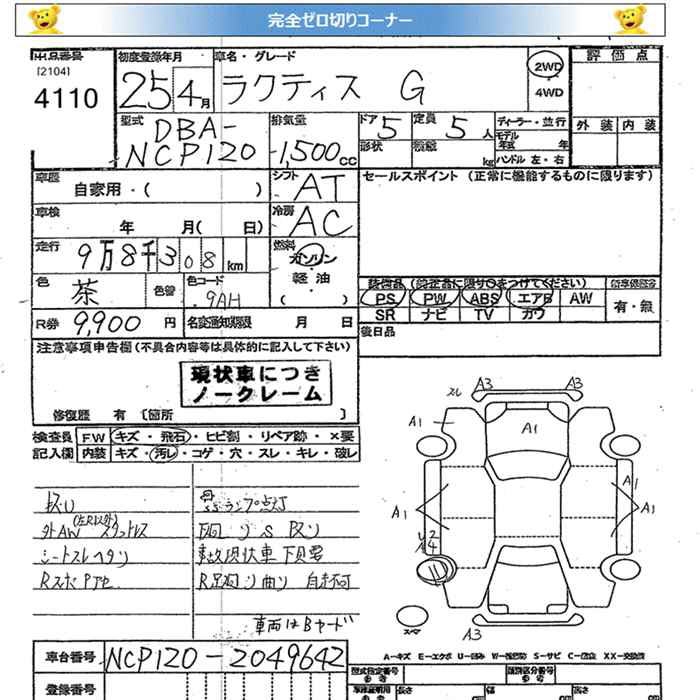 完全ゼロ切りコーナー
出品番号
[2104]
4110
初度登録年月
25年4月
車名・グレード
ラクティス G
2WD
4WD
評価点
外装 内装
型式
DBA-
NCP120
排気量
1,500cc
ドア 5
定員 5人
形状 積載 kg
ディーラー・並行
モデル年式 年
ハンドル 左・右
車歴
自家用・( )
シフト
AT
セールスポイント (正常に機能するものに限ります)
車検
年 月( 日)
冷房
AC
走行
9万8千308km
燃料
ガソリン
軽油
( )
色
茶
色替
色コード
9AH
装備品 (純正品に限り○をつけてください)
PS PW ABS エアB AW
SR ナビ TV カワ
有・無
R券 9,900円
名変通知期限 月 日
後日品
注意事項申告欄(不具合内容等は具体的に記入して下さい)
現状車につき
ノークレーム
修復歴 有〔箇所 〕
検査員
記入欄
FW キズ・飛石・ヒビ割・リペア跡・×要
内装 キズ・汚レ・コゲ・穴・スレ・キレ・破レ
シートスレヘタリ
車両はBヤード
スレ A3 A3
A1
A1
A1
A1
A1
A3
スペア
A-キズ E-エクボ U-凹み W-補修跡 S-サビ C-腐食 XX-交換済
車台番号 NCP120-2049642
登録番号
型式指定番号
参考
類別区分番号
参考
長さ cm
幅 cm
高さ cm